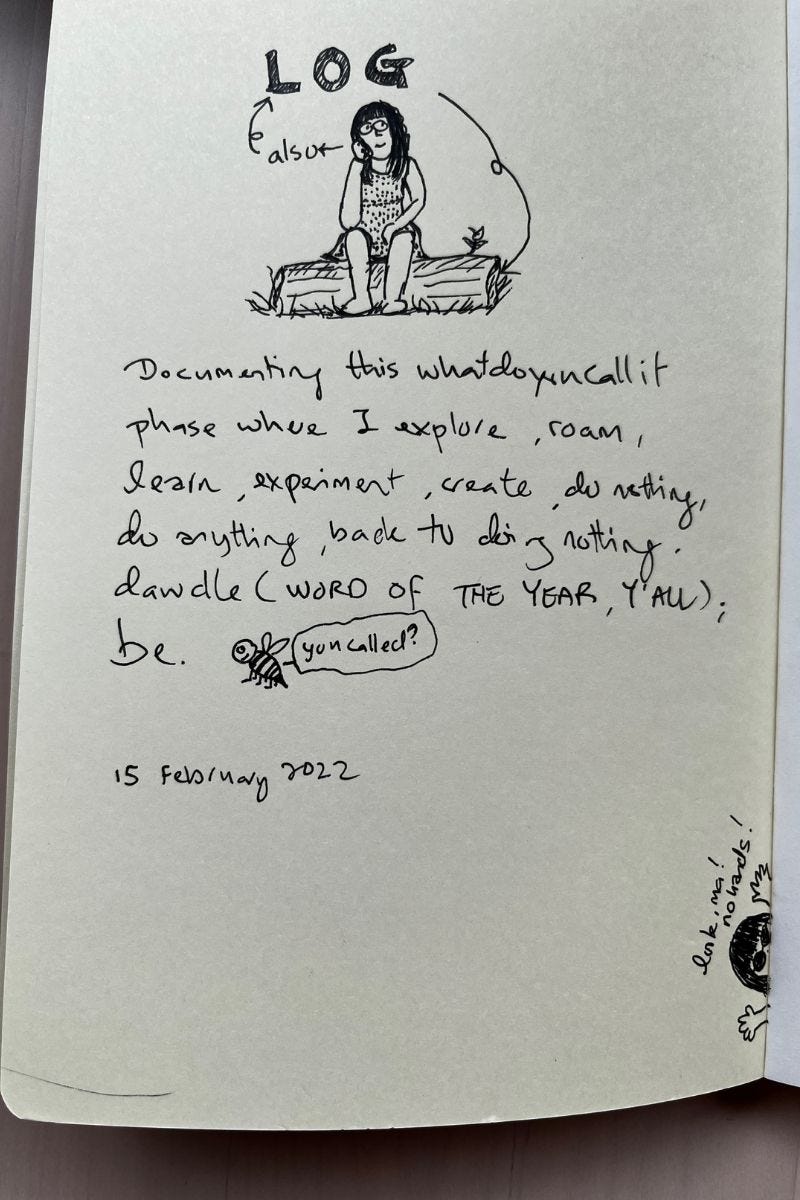 LOG
also
Documenting this whatdoyoucallit
phase where I explore, roam,
learn, experiment, create, do nothing,
do anything, back to doing nothing.
dawdle (WORD OF THE YEAR, Y'ALL);
be.
you called?
15 February 2022
look, ma!
no hands!